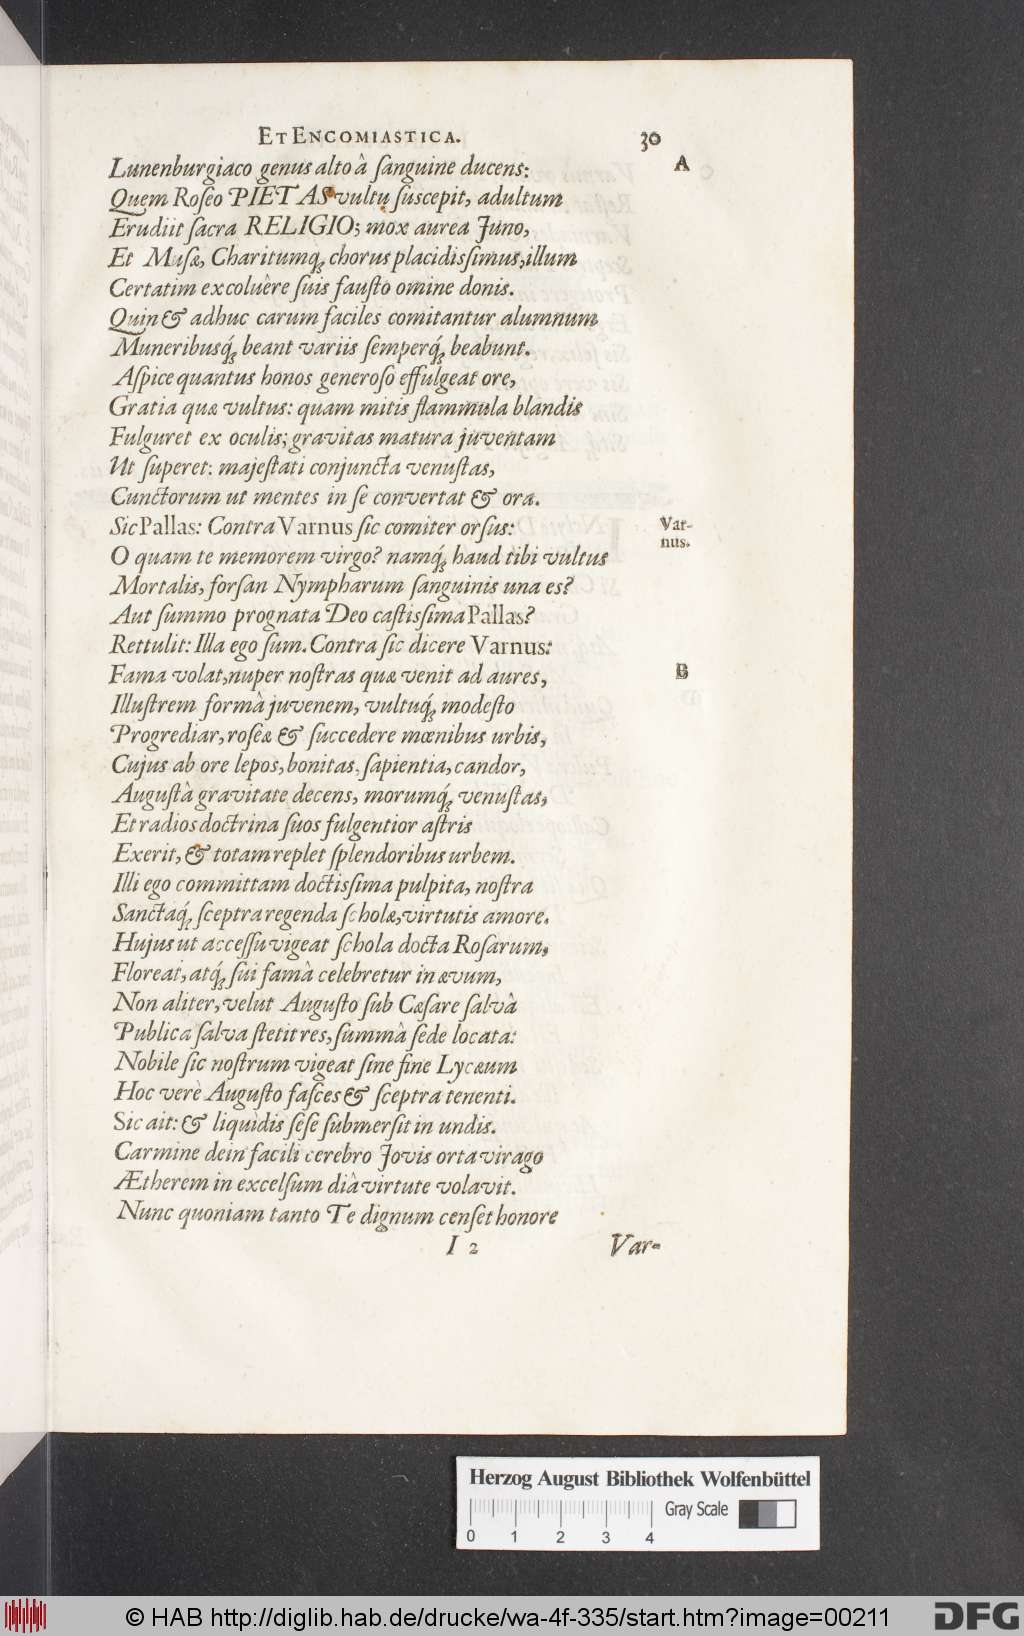 ET ENCOMIASTICA. 30
Lunenburgiaco genus alto à ſanguine ducens: A
Quem Roſeo PIETAS vultu ſuscepit, adultum
Erudiit ſacra RELIGIO; mox aurea Juno,
Et Muſæ, Charitumq́; chorus placidisſimus, illum
Certatim excoluêre ſuis fauſto omine donis.
Quin & adhuc carum faciles comitantur alumnum
Muneribusq́; beant variis ſemperq́; beabunt.
Aſpice quantus honos generoſo effulgeat ore,
Gratia quæ vultus: quam mitis flammula blandis
Fulguret ex oculis; gravitas matura juventam
Ut ſuperet: majeſtati conjuncta venuſtas,
Cunctorum ut mentes in ſe convertat & ora.
Sic Pallas: Contra Varnus ſic comiter orſus: Var-
nus.
O quam te memorem virgo? namq́; haud tibi vultus
Mortalis, forſan Nympharum ſanguinis una es?
Aut ſummo prognata Deo caſtisſima Pallas?
Rettulit: Illa ego ſum. Contra ſic dicere Varnus:
Fama volat, nuper noſtras quæ venit ad aures, B
Illuſtrem formâ juvenem, vultuq́; modeſto
Progrediar, roſeæ & ſuccedere mœnibus urbis,
Cujus ab ore lepos, bonitas, ſapientia, candor,
Auguſtâ gravitate decens, morumq́; venuſtas,
Et radios doctrina ſuos fulgentior aſtris
Exerit, & totam replet ſplendoribus urbem.
Illi ego committam doctisſima pulpita, noſtra
Sanctaq́; ſceptra regenda ſcholæ, virtutis amore.
Hujus ut acceſſu vigeat ſchola docta Roſarum,
Floreat, atq́; ſui famâ celebretur in ævum,
Non aliter, velut Auguſto ſub Cæſare ſalvâ
Publica ſalva ſtetit res, ſummâ ſede locata:
Nobile ſic noſtrum vigeat ſine fine Lycæum
Hoc verè Auguſto faſces & ſceptra tenenti.
Sic ait: & liquidis ſeſe ſubmerſit in undis.
Carmine dein facili cerebro Jovis orta virago
Ætherem in excelſum diâ virtute volavit.
Nunc quoniam tanto Te dignum cenſet honore
I 2 Var-
Herzog August Bibliothek Wolfenbüttel
Gray Scale
0 1 2 3 4
© HAB http://diglib.hab.de/drucke/wa-4f-335/start.htm?image=00211 DFG